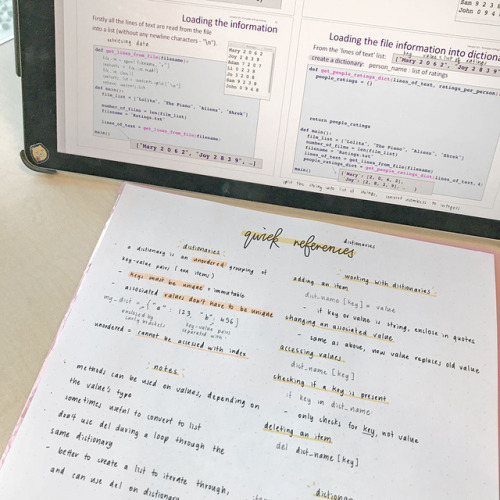 Loading the information
Firstly all the lines of text are read from the file
into a list (without any newline characters - "\n").
retrieving data
def get_lines_from_file(filename):
Mary 2 0 6 2
Joy 2 8 3 9
def main():
film_list = ["Lolita", "The Piano", "Aliens", "Shrek"]
number_of_films = len(film_list)
filename = "Ratings.txt"
lines_of_text = get_lines_from_file(filename)
main()
["Mary 2 0 6 2", "Joy 2 8 3 9" …]
Sam 9 2 3
John 0 9 4
Loading the file information into dictiona
From the 'lines of text' list:
["Mary 2 0 6 2", "Joy 2 8 3
create a dictionary: person_name : list of ratings
def get_people_ratings_dict(lines_of_text, ratings_per_person):
people_ratings = {}
return people_ratings
def main():
film_list = ["Lolita", "The Piano", "Aliens", "Shrek"]
number_of_films = len(film_list)
filename = "Ratings.txt"
lines_of_text = get_lines_from_file(filename)
people_ratings_dict = get_people_ratings_dict(lines_of_text,
main()
quick references
dictionaries
dictionaries:
dictionary is an unordered grouping of
key-value pairs (aka items)
- keys must be unique + immutable
- associated values don't have to be unique
my_dist = {"a" : 123, "b" : 456}
enclosed by
curly brackets
key-value pairs
separated with ,
unordered = cannot be accessed with index
:notes:
methods can be used on values, depending on
the value's type
sometimes useful to convert to list
don't use del during a loop through the
same dictionary
- better to create a list to iterate through,
and can use del on dictionary
working with dictionaries:
adding an item
dist_name [key] = value
- if key or value is string, enclose in quotes
changing an associated value
- same as above, new value replaces old value
accessing values
dist_name [key]
checking if a key is present
if key in dist_name
- only checks for key, not value
deleting an item
del dist_name [key]